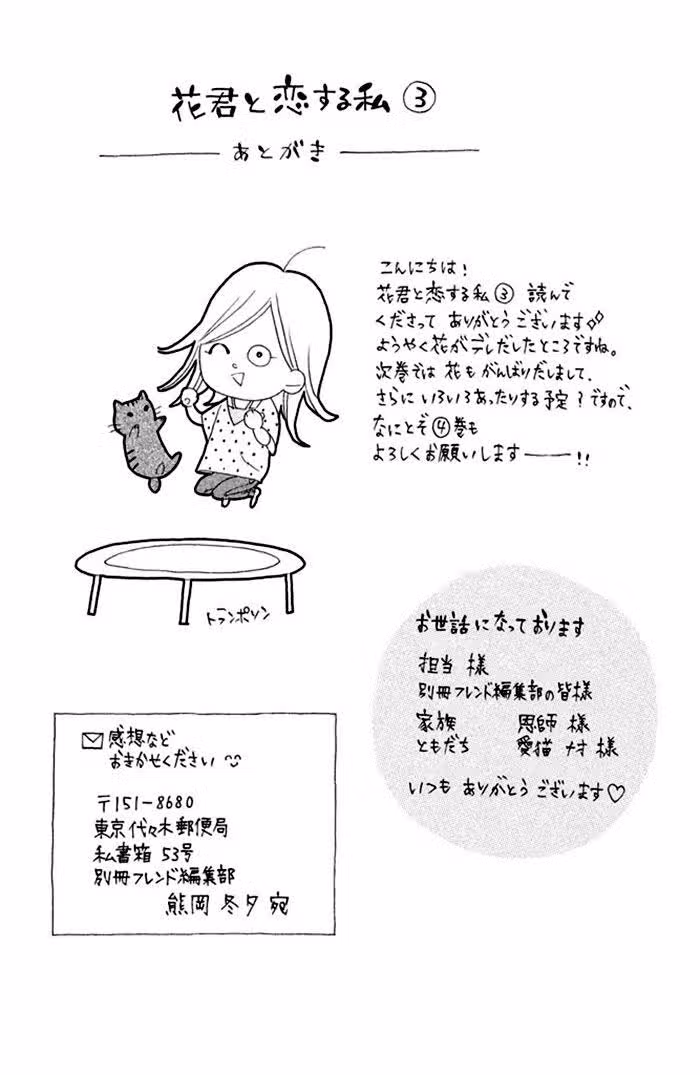 花君と恋する私 ③
あとがき
こんにちは!
花君と恋する私 ③ 読んで
くださって ありがとう ございます
ようやく花がデレだしたところですね。
次巻では 花も がんばりだしまして、
さらに いろいろあったりする予定?ですので、
なにとぞ ④巻も
よろしくお願いします――!!
トランポリン
お世話になっております
担当 様
別冊フレンド編集部の皆様
家族 恩師 様
ともだち 愛猫 ナオ 様
いつも ありがとう ございます♡
感想など
おきかせください
〒151-8680
東京代々木郵便局
私書箱 53号
別冊フレンド編集部
熊岡 冬夕 宛